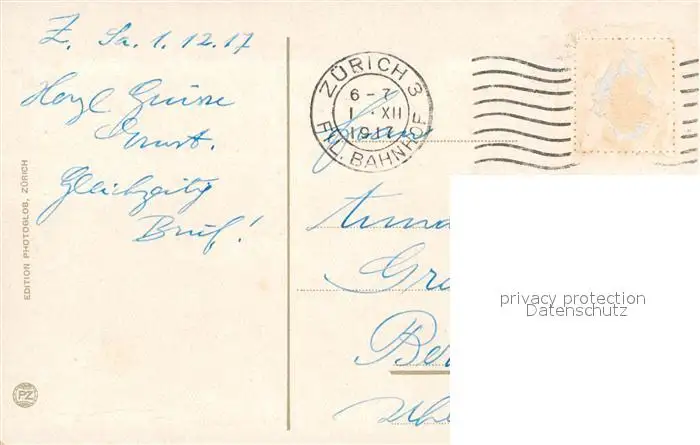 Z. Sa. 1.12.17
Herzl Grüsse
Ernst.
Gleichzeitig
Brief!
EDITION PHOTOGLOB, ZÜRICH
PZ
ZÜRICH 3
6-7
1.XII
1917
FIL. BAHNHOF
Anna
privacy protection
Datenschutz